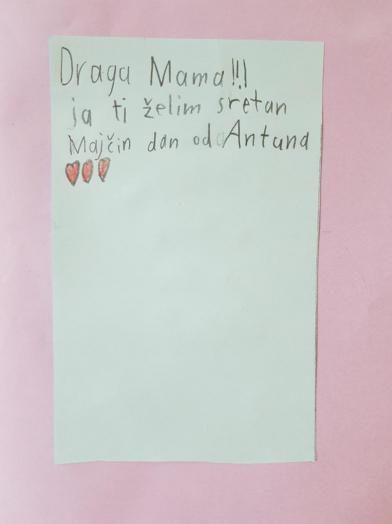 Draga Mama!!!
ja ti želim sretan
Majčin dan od Antuna